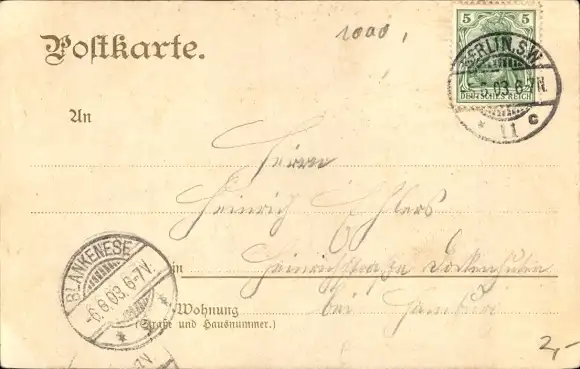 Postkarte.
1000,
5 5
DEUTSCHES REICH
BERLIN. S.W.
6.03. 6-7N.
* 11 c
An
Herrn
Heinrich Ehlers
BLANKENESE
-6.6.03. 6-7V.
*
in
Heinrichstraße Dockenhuden
bei Hamburg
Wohnung
(Straße und Hausnummer.)
2,-